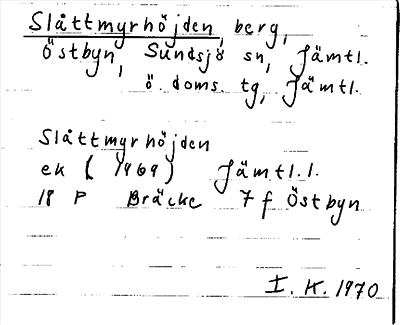 Slåttmyrhöjden, berg,
Östbyn, Sundsjö sn, Jämtl.
ö. doms. tg, Jämtl.
Slåttmyrhöjden
ek (1969) Jämtl. l.
18 P Bräcke 7 f Östbyn
I. K. 1970